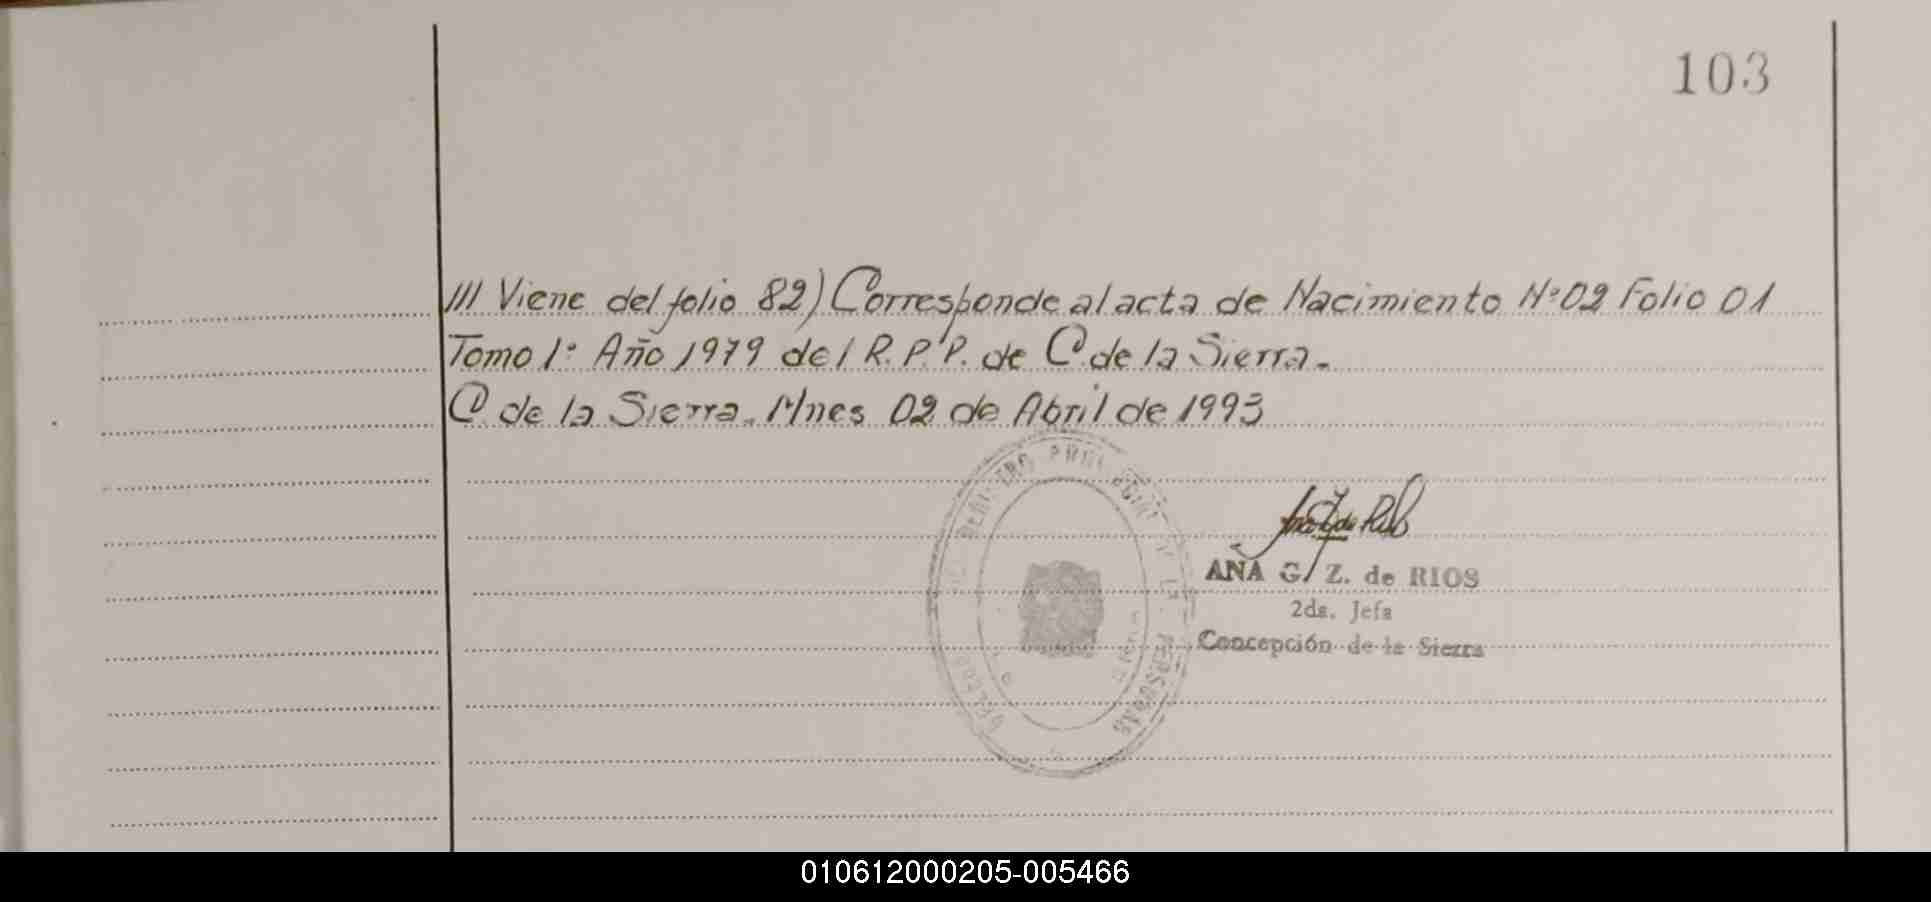 103
/// Viene del folio 82) Corresponde al acta de Nacimiento Nº 02 Folio 01
Tomo 1º Año 1979 del R.P.P. de C. de la Sierra.-
C. de la Sierra. Mnes 02 de Abril de 1993
ANA G. Z. de RIOS
2da. Jefa
Concepción de la Sierra
REGISTRO PERSONAS
010612000205-005466